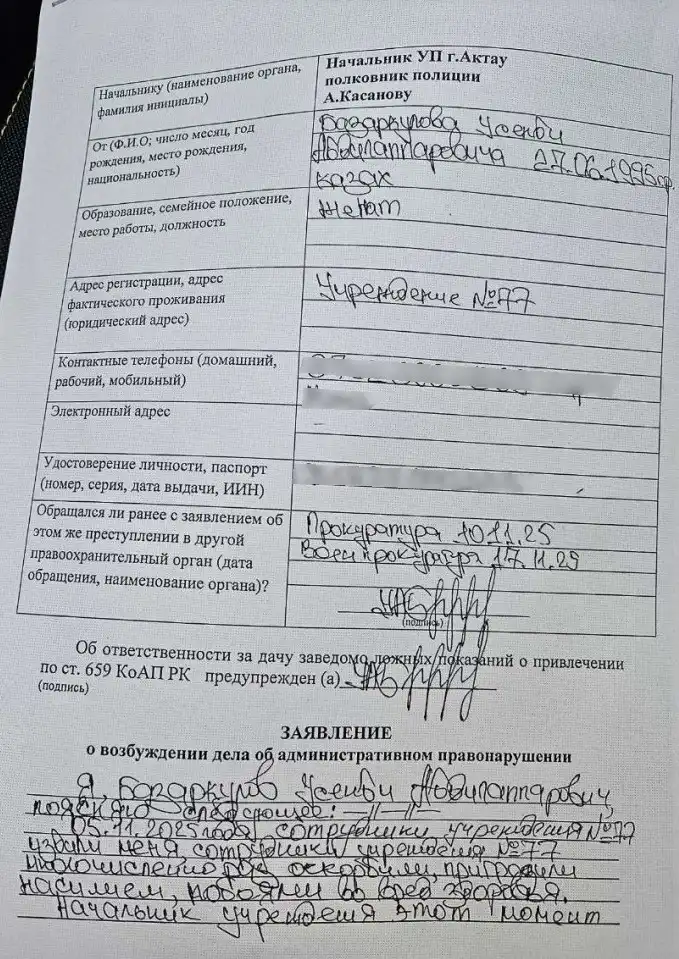 Начальнику (наименование органа, фамилия инициалы)
Начальник УП г.Актау
полковник полиции
А.Касанову
От (Ф.И.О; число месяц, год рождения, место рождения, национальность)
Базаркулова Усенби
Абдилаттаровича 27.06.1995гр.
казах
Образование, семейное положение, место работы, должность
Женат
Адрес регистрации, адрес фактического проживания (юридический адрес)
Учреждение №77
Контактные телефоны (домашний, рабочий, мобильный)
Электронный адрес
Удостоверение личности, паспорт (номер, серия, дата выдачи, ИИН)
Обращался ли ранее с заявлением об этом же преступлении в другой правоохранительный орган (дата обращения, наименование органа)?
Прокуратура 10.11.25
Воен прокуратура 17.11.25
(подпись)
Об ответственности за дачу заведомо ложных показаний о привлечении
по ст. 659 КоАП РК предупрежден (а)
(подпись)
ЗАЯВЛЕНИЕ
о возбуждении дела об административном правонарушении
Я, Базаркулов Усенби Абдилаттарович,
поясняю следующее: —//—//—
05.11.2025 года, сотрудники учреждения №77
меня сотрудники учреждения №77
оскорбили,
насилием, побоями во вред здоровья.
Начальник учреждения этот момент